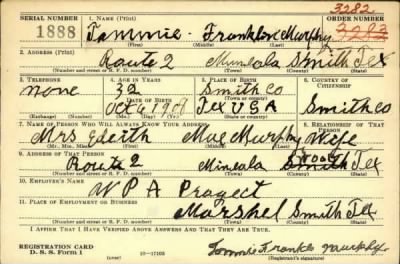 3282
SERIAL NUMBER 1. NAME (Print) ORDER NUMBER
1888 Tommie - Franklon Murphy 3283
(First) (Middle) (Last)
2. ADDRESS (Print)
Route 2 Mineola Smith Tex
(Number and street or R. F. D. number) (Town) (County) (State)
3. TELEPHONE 4. AGE IN YEARS 5. PLACE OF BIRTH 6. COUNTRY OF CITIZENSHIP
none 32 Smith Co
DATE OF BIRTH (Town or county)
Oct 6 1908 Tex USA Smith Co
(Exchange) (Number) (Mo.) (Day) (Yr.) (State or country)
7. NAME OF PERSON WHO WILL ALWAYS KNOW YOUR ADDRESS 8. RELATIONSHIP OF THAT PERSON
Mrs Edeith Mae Murphy Wife
(Mr., Mrs., Miss) (First) (Middle) (Last)
9. ADDRESS OF THAT PERSON
Wood
Route 2 Mineola Smith Tex
(Number and street or R. F. D. number) (Town) (County) (State)
10. EMPLOYER'S NAME
W P A Pragect
11. PLACE OF EMPLOYMENT OR BUSINESS
Marshel Smith Tex
(Number and street or R. F. D. number) (Town) (County) (State)
I AFFIRM THAT I HAVE VERIFIED ABOVE ANSWERS AND THAT THEY ARE TRUE.
REGISTRATION CARD
D. S. S. Form 1 16—17105 Tommie Franklo Murphy
(Registrant's signature)